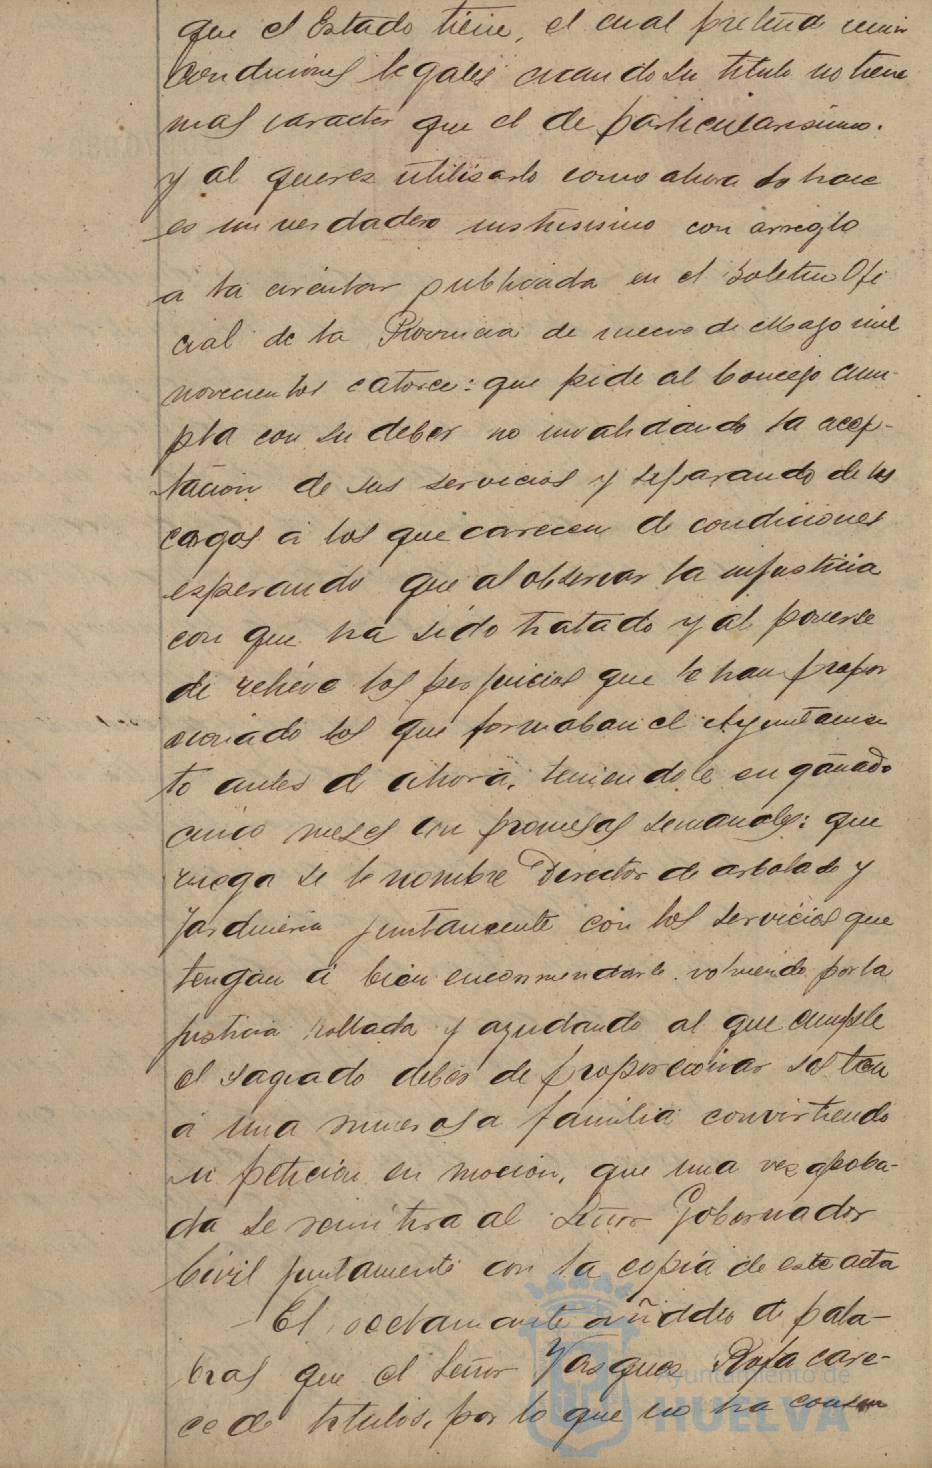 que el Estado tiene, el cual pretende reunir
condiciones legales cuando su titulo no tiene
mas caracter que el de particularisimo.
y al querer utilisarlo como ahora lo hace
es un verdadero con arreglo
a la circular publicada en el Boletin Ofi
cial de la Provincia de nueve de Mayo mil
novecientos catorce: que pide al Concejo cum-
pla con su deber no invalidando la acep-
tación de sus servicios y separando de los
cargos á los que carecen de condiciones
esperando que al observar la injusticia
con que ha sido tratado y al ponerse
de relieve los perjuicios que le han propor
cionado los que formaban el Ayuntamien
to antes de ahora, teniendole engañado
cinco meses con promesas semanales: que
ruega se le nombre Director de arbolado y
Jardineria juntamente con los servicios que
tengan á bien encomendarle volviendo por la
justicia hollada y ayudando al que cumple
el sagrado deber de proporcionar sosten
á una numerosa familia convirtiendo
su petición en moción, que una vez aproba-
da se remitira al Señor Gobernador
Civil juntamente con la copia de este acta
El reclamante añiddio de pala-
bras que el Señor Vasquez Roja care-
ce de titulos, por lo que no ha
Ayuntamiento de
HUELVA